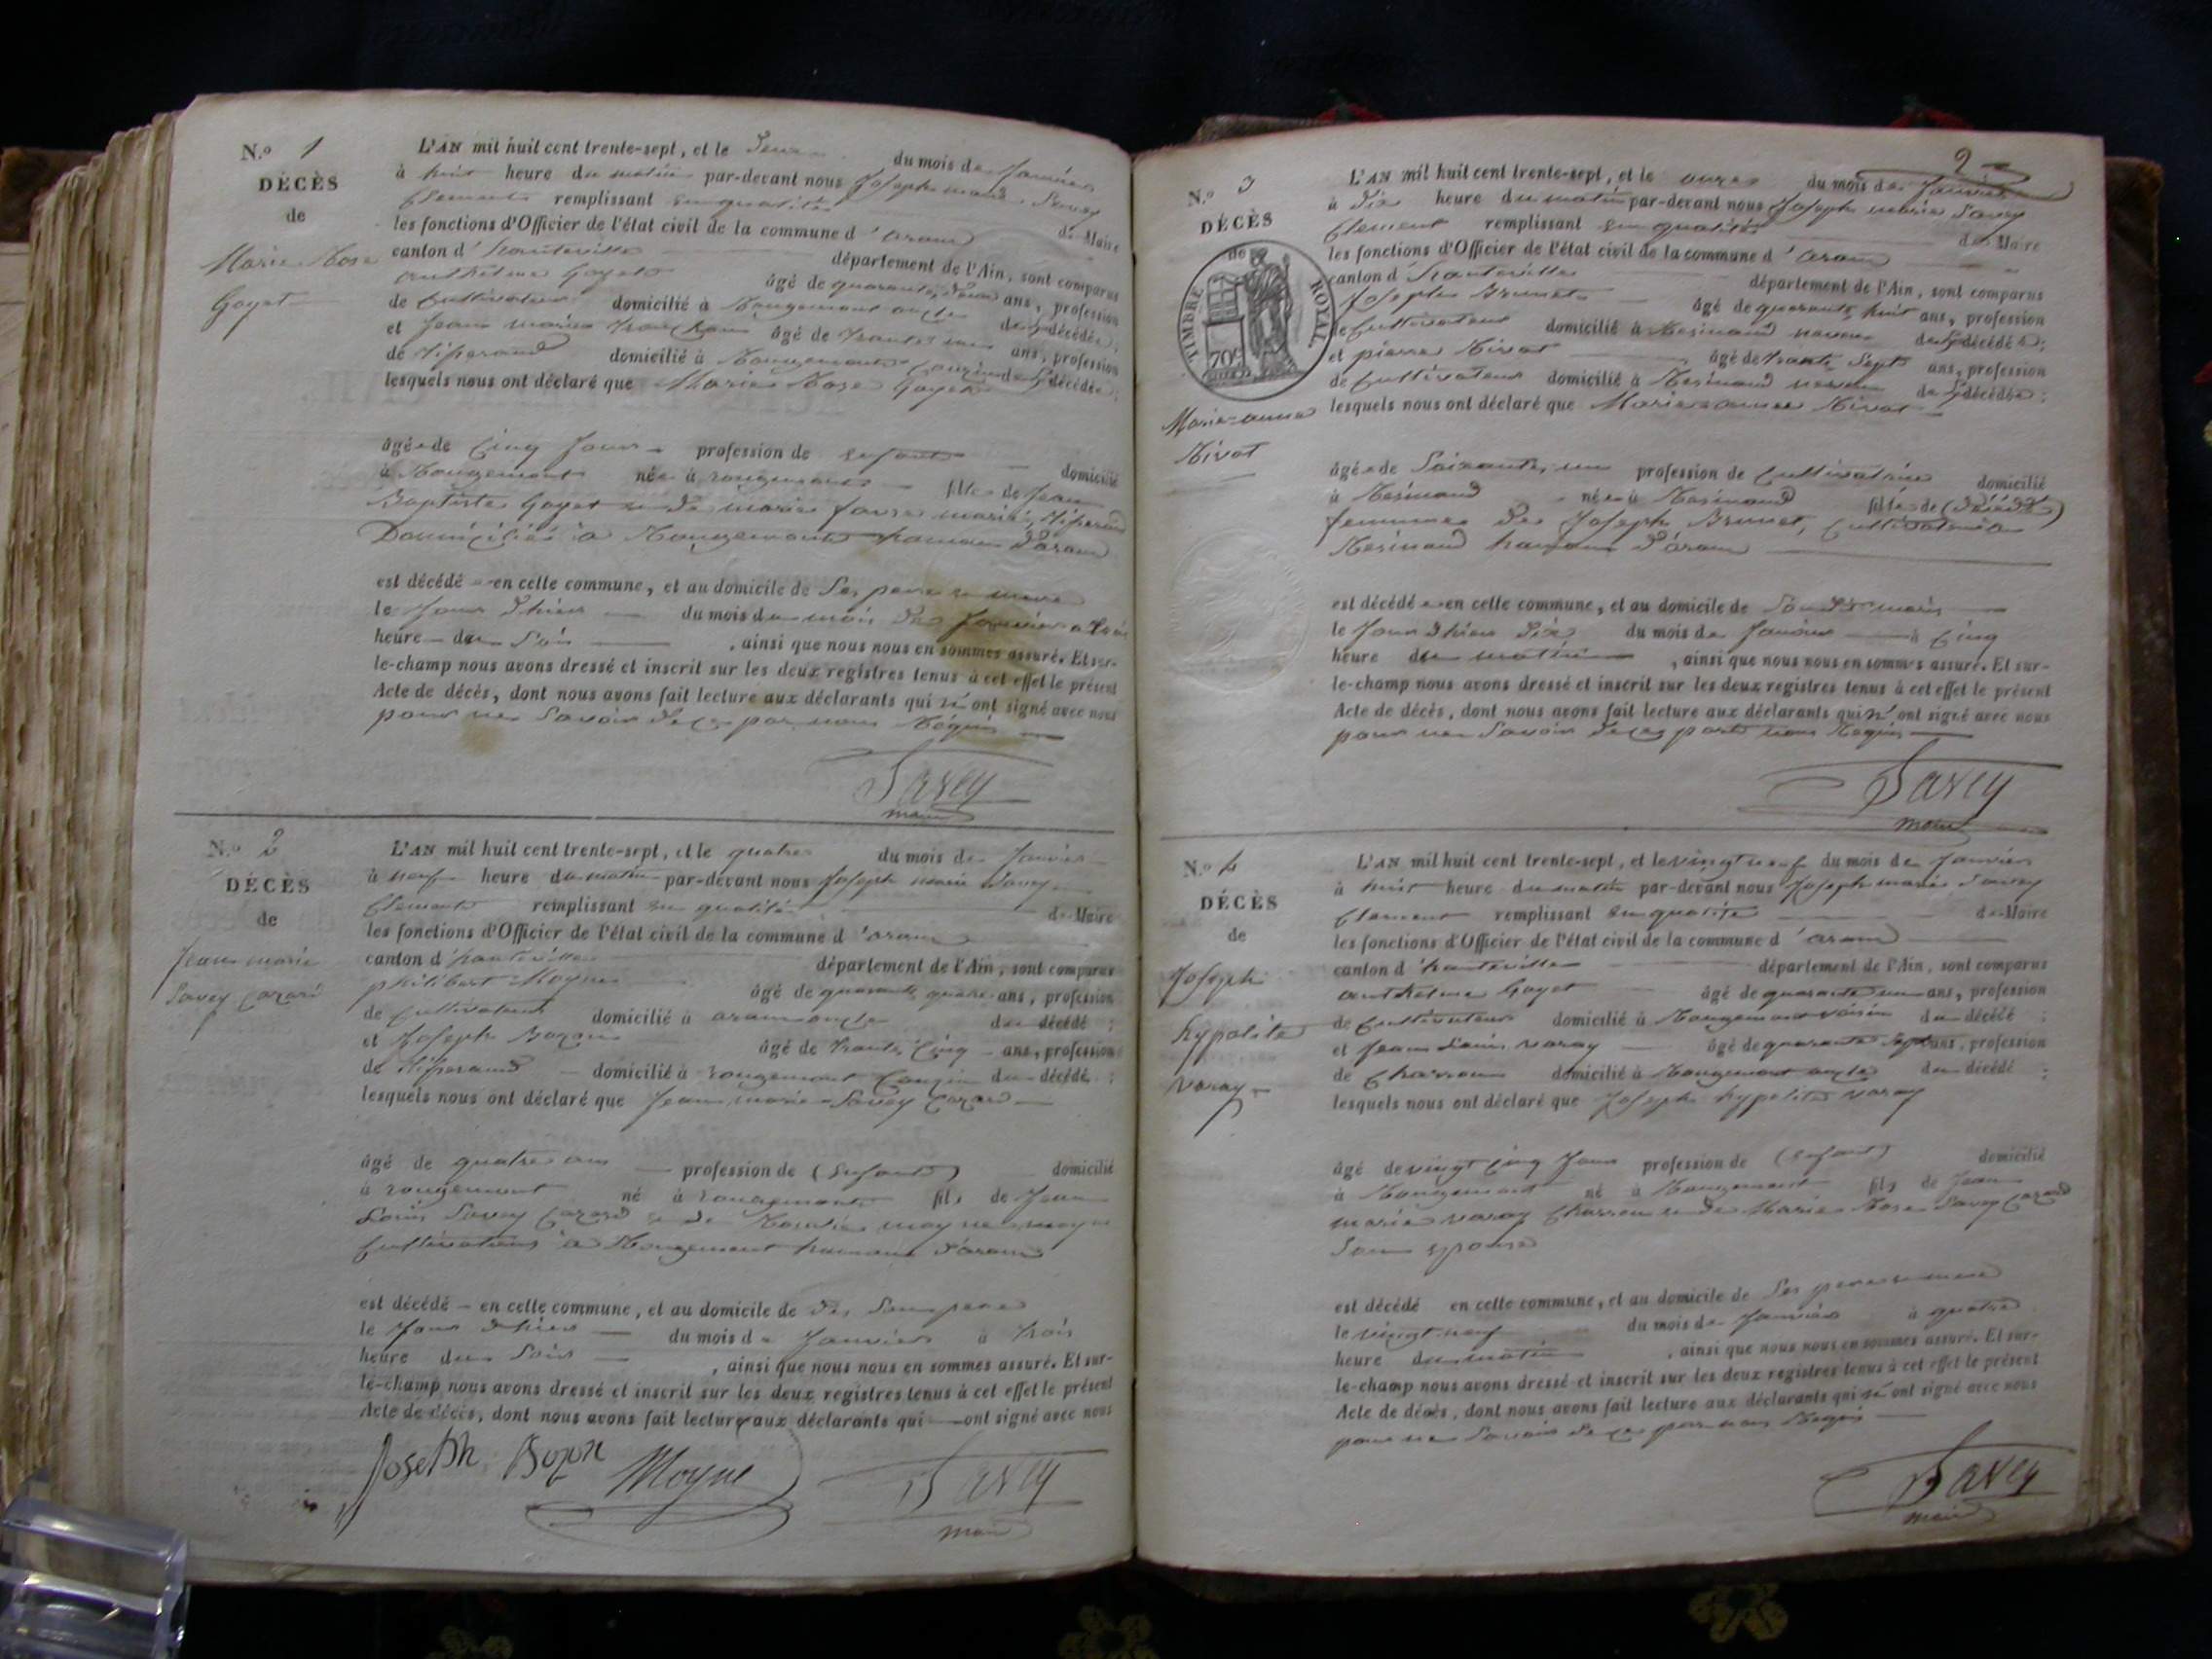 N.º 1
DÉCÈS
de
Marie Rose
Goyet
L'AN mil huit cent trente-sept, et le deux du mois de Janvier
à huit heure du matin par-devant nous Joseph marie Savey
Clement remplissant en qualité de Maire
les fonctions d'Officier de l'état civil de la commune d'aranc
canton d'hauteville département de l'Ain, sont comparus
anthelme Goyet âgé de quarante deux ans, profession
de Cultivateur domicilié à Rougemont oncle de la décédée;
et Jean marie âgé de trente ans, profession
de tisserand domicilié à Rougemont Cousin de la décédée;
lesquels nous ont déclaré que Marie Rose Goyet
âgée de Cinq Jours profession de enfant domicilié
à Rougemont née à rougemont fille de Jean
Baptiste Goyet et de marie favre mariés, tisserand
Domiciliés à Rougemont hameau d'aranc
est décédée en cette commune, et au domicile de Ses pere et mere
le Jour d'hier du mois du mois de Janvier a
heure du Soir, ainsi que nous nous en sommes assuré. Et sur-
le-champ nous avons dressé et inscrit sur les deux registres tenus à cet effet le présent
Acte de décès, dont nous avons fait lecture aux déclarants qui n'ont signé avec nous
pour ne Savoir de ce par nous Réquis
Savey
maire
N.º 2
DÉCÈS
de
Jean marie
Savey Cazard
L'AN mil huit cent trente-sept, et le quatre du mois de Janvier
à neuf heure du matin par-devant nous Joseph marie Savey
Clement remplissant en qualité de Maire
les fonctions d'Officier de l'état civil de la commune d'aranc
canton d'hauteville département de l'Ain, sont comparus
philibert Moyne âgé de quarante quatre ans, profession
de Cultivateur domicilié à aranc oncle du décédé;
et Joseph Bozon âgé de trente Cinq ans, profession
de tisserand domicilié à rougemont Cousin du décédé;
lesquels nous ont déclaré que Jean marie Savey Cazard
âgé de quatre ans profession de (Enfant) domicilié
à rougemont né à rougemont fils de Jean
Louis Savey Cazard et de Rosalie moyne
Cultivateurs à Rougemont hameau d'aranc
est décédé en cette commune, et au domicile de Son pere
le Jour d'hier du mois de Janvier à trois
heure du Soir, ainsi que nous nous en sommes assuré. Et sur-
le-champ nous avons dressé et inscrit sur les deux registres tenus à cet effet le présent
Acte de décès, dont nous avons fait lecture aux déclarants qui ont signé avec nous
Joseph Bozon Moyne Savey
maire
2
N.º 3
DÉCÈS
de
TIMBRE ROYAL
70c
Marie-anne
Rivat
L'AN mil huit cent trente-sept, et le onze du mois de Janvier
à dix heure du matin par-devant nous Joseph marie Savey
Clement remplissant en qualité de Maire
les fonctions d'Officier de l'état civil de la commune d'aranc
canton d'hauteville département de l'Ain, sont comparus
Joseph Brunet âgé de quarante huit ans, profession
de Cultivateur domicilié à Resinand neveu de la décédée;
et pierre Rivat âgé de trente Sept ans, profession
de Cultivateur domicilié à Resinand neveu de la décédée;
lesquels nous ont déclaré que Marie-anne Rivat
âgée de Soixante un profession de Cultivatrice domicilié
à Resinand née à Resinand fille de (décédés)
femme de Joseph Brunet, Cultivateur à
Resinand hameau d'aranc
est décédée en cette commune, et au domicile de Son dt mari
le Jour d'hier dix du mois de Janvier à Cinq
heure du matin, ainsi que nous nous en sommes assuré. Et sur-
le-champ nous avons dressé et inscrit sur les deux registres tenus à cet effet le présent
Acte de décès, dont nous avons fait lecture aux déclarants qui n'ont signé avec nous
pour ne Savoir de ce par nous Requis
Savey
maire
N.º 4
DÉCÈS
de
Joseph
hypolite
varay
L'AN mil huit cent trente-sept, et le vingt neuf du mois de Janvier
à huit heure du matin par-devant nous Joseph marie Savey
Clement remplissant En qualité de Maire
les fonctions d'Officier de l'état civil de la commune d'aranc
canton d'hauteville département de l'Ain, sont comparus
anthelme Goyet âgé de quarante un ans, profession
de Cultivateur domicilié à Rougemont voisin du décédé;
et Jean Louis varay âgé de quarante Sept ans, profession
de Charron domicilié à Rougemont oncle du décédé;
lesquels nous ont déclaré que Joseph hypolite varay
âgé de vingt Cinq Jours profession de (enfant) domicilié
à Rougemont né à Rougemont fils de Jean
marie varay Charron et de Marie Rose Savey Cazard
Son epouse
est décédé en cette commune, et au domicile de Ses pere et mere
le vingt-neuf du mois de Janvier à quatre
heure du matin, ainsi que nous nous en sommes assuré. Et sur-
le-champ nous avons dressé et inscrit sur les deux registres tenus à cet effet le présent
Acte de décès, dont nous avons fait lecture aux déclarants qui n'ont signé avec nous
pour ne Savoir de ce par nous Requis
Savey
maire